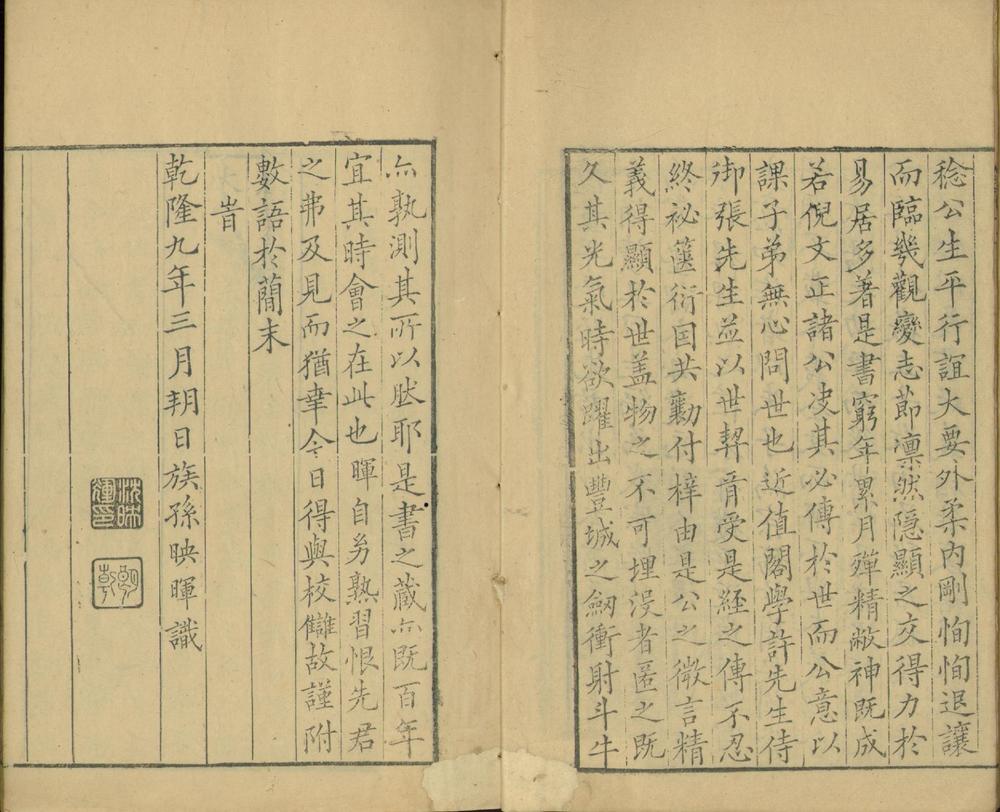 稔公生平行誼大要外柔內剛恂恂退讓
而臨幾觀變志節凛然隱顯之交得力於
易居多著是書窮年累月殫精敝神既成
若倪文正諸公决其必傳於世而公意以
課子弟無心問世也近值閣學許先生侍
御張先生並以世契胥受是経之傳不忍
終祕篋衍囯共勷付梓由是公之微言精
義得顯於世盖物之不可埋没者匿之既
久其光氣時欲躍出豐城之劒衝射斗牛
亦孰測其所以肰耶是書之藏亦既百年
宜其時會之在此也暉自㓜熟習恨先君
之弗及見而猶幸今日得與校讎故謹附
數語於蕳末
旹
乾隆九年三月朔日族孫映暉識
沈映
暉印
朗
乾